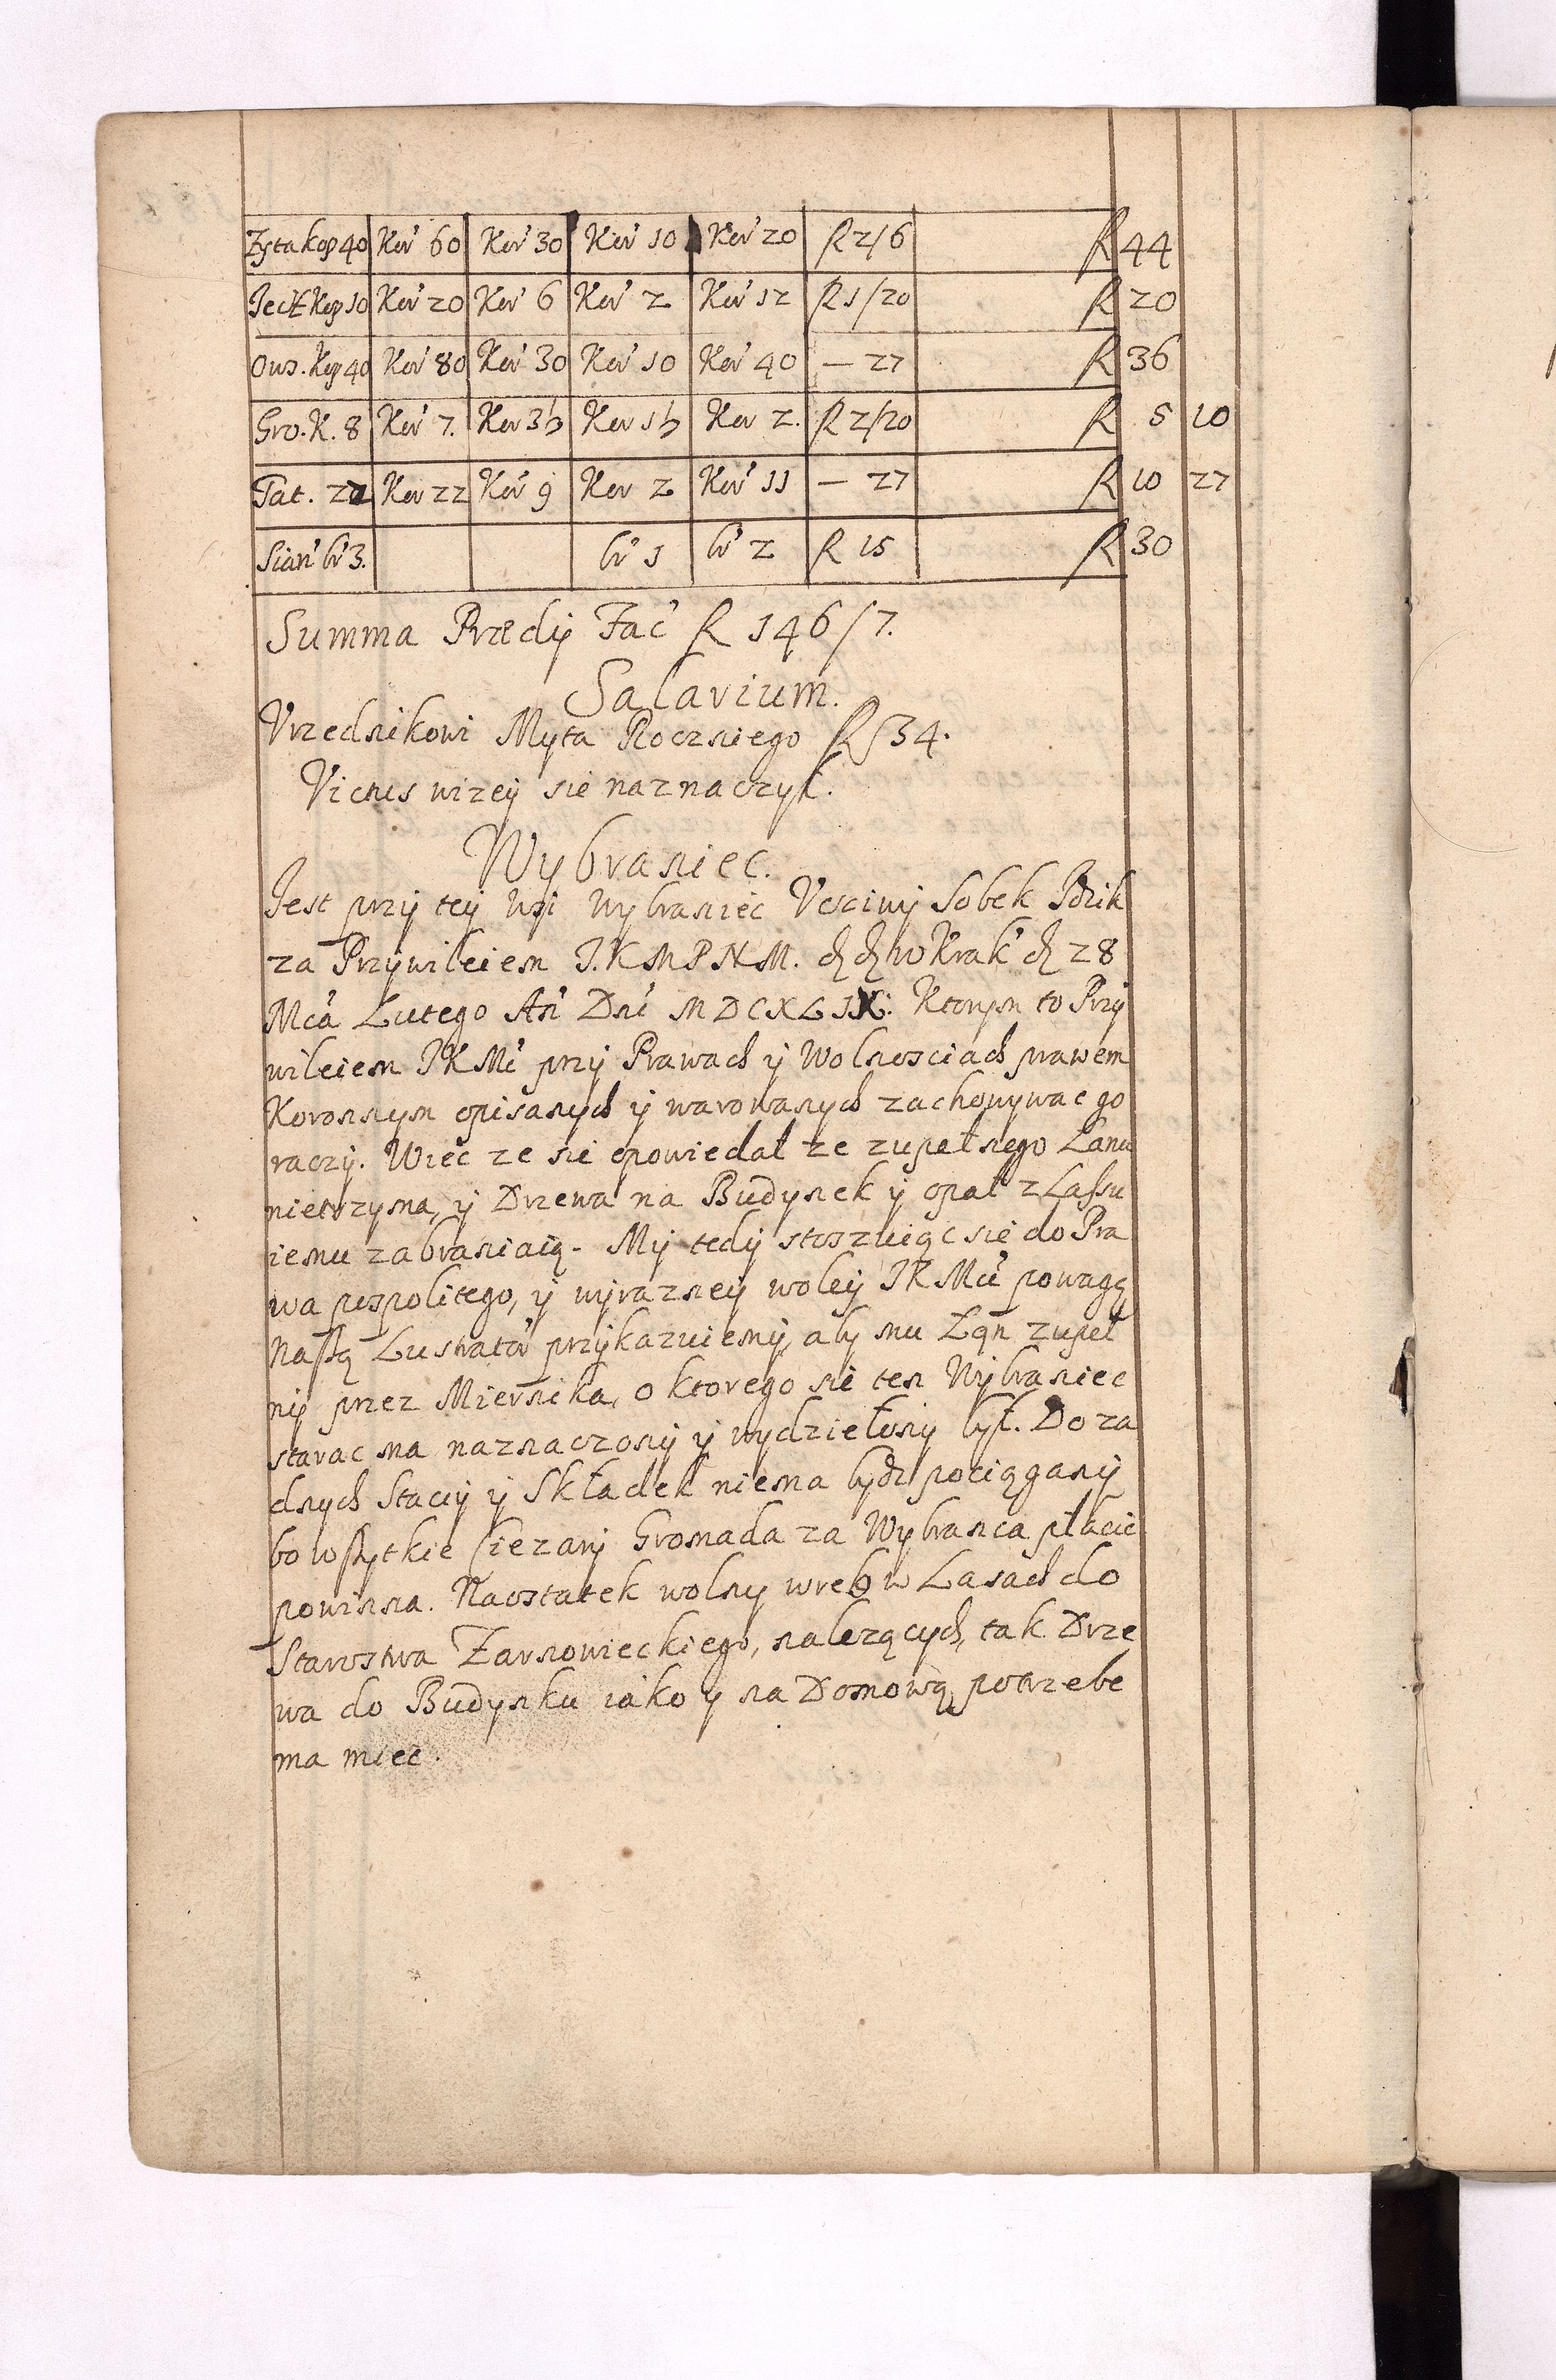 Zyta kop 40 Kor' 60 Kor' 30 Kor' 10 Kor' 20 fl 2/6 fl 44
Ieċz Kop 10 Kor' 20 Kor' 6 Kor' 2 Kor' 12 fl 1/20 fl 20
Ows. Kop 40 Kor' 80 Kor' 30 Kor' 10 Kor' 40 — 27 fl 36
Gro. K. 8 Kor' 7. Kor 3 Kor 1 Kor 2. fl 2/20 fl 5 10
Tat. 22 Kor 22 Kor' 9 Kor 2 Kor' 11 — 27 fl 10 27
Sian' br' 3. br' 1 br' 2 fl 15 fl 30
Summa Przedÿ Fac' fl 146/7.
Salarium.
Vrzednikowi Myta Rocznego fl 34.
Victus wizeÿ sie naznaczył.
Wybraniec.
Jest przÿ teÿ wsi Wybraniec Vcciwÿ Sobek
za Przÿwileiem J.K M P N M. w Krak' 28
Mca' Lutego An' Dni' M D C X L I X. Ktorym to Przÿ
wileiem J K Mci przÿ Prawach ÿ Wolnosciach prawem
Koronnym opisanych ÿ warowanych zachowywac go
raczÿ. Wiec ze sie opowiedał ze zupełnego Łanu
nietrzyma, ÿ Drzewa na Budynek ÿ opał z Lassu
iemu zabraniaią. Mÿ tedÿ stosuiąc się do Pra
wa pospolitego, ÿ wyrazneÿ woleÿ J K Mci powagą
naszą Lustrator' przÿkazuiemÿ, aby mu Łąn zupeł
nÿ przez Miernika, o ktorego sie ten Wÿbraniec
starac ma naznaczonÿ ÿ wydzielonÿ był. Do za
dnych Staciÿ ÿ Składek niema bydz pociąganÿ
bo wszytkie Ciezarÿ Gromada za Wybranca płacic
powinna. Naostatek wolny wreb w Lasach do
Starostwa Zarnowieckiego, nalezących, tak Drze
wa do Budynku iako y na Domową potrzebe
ma miec.